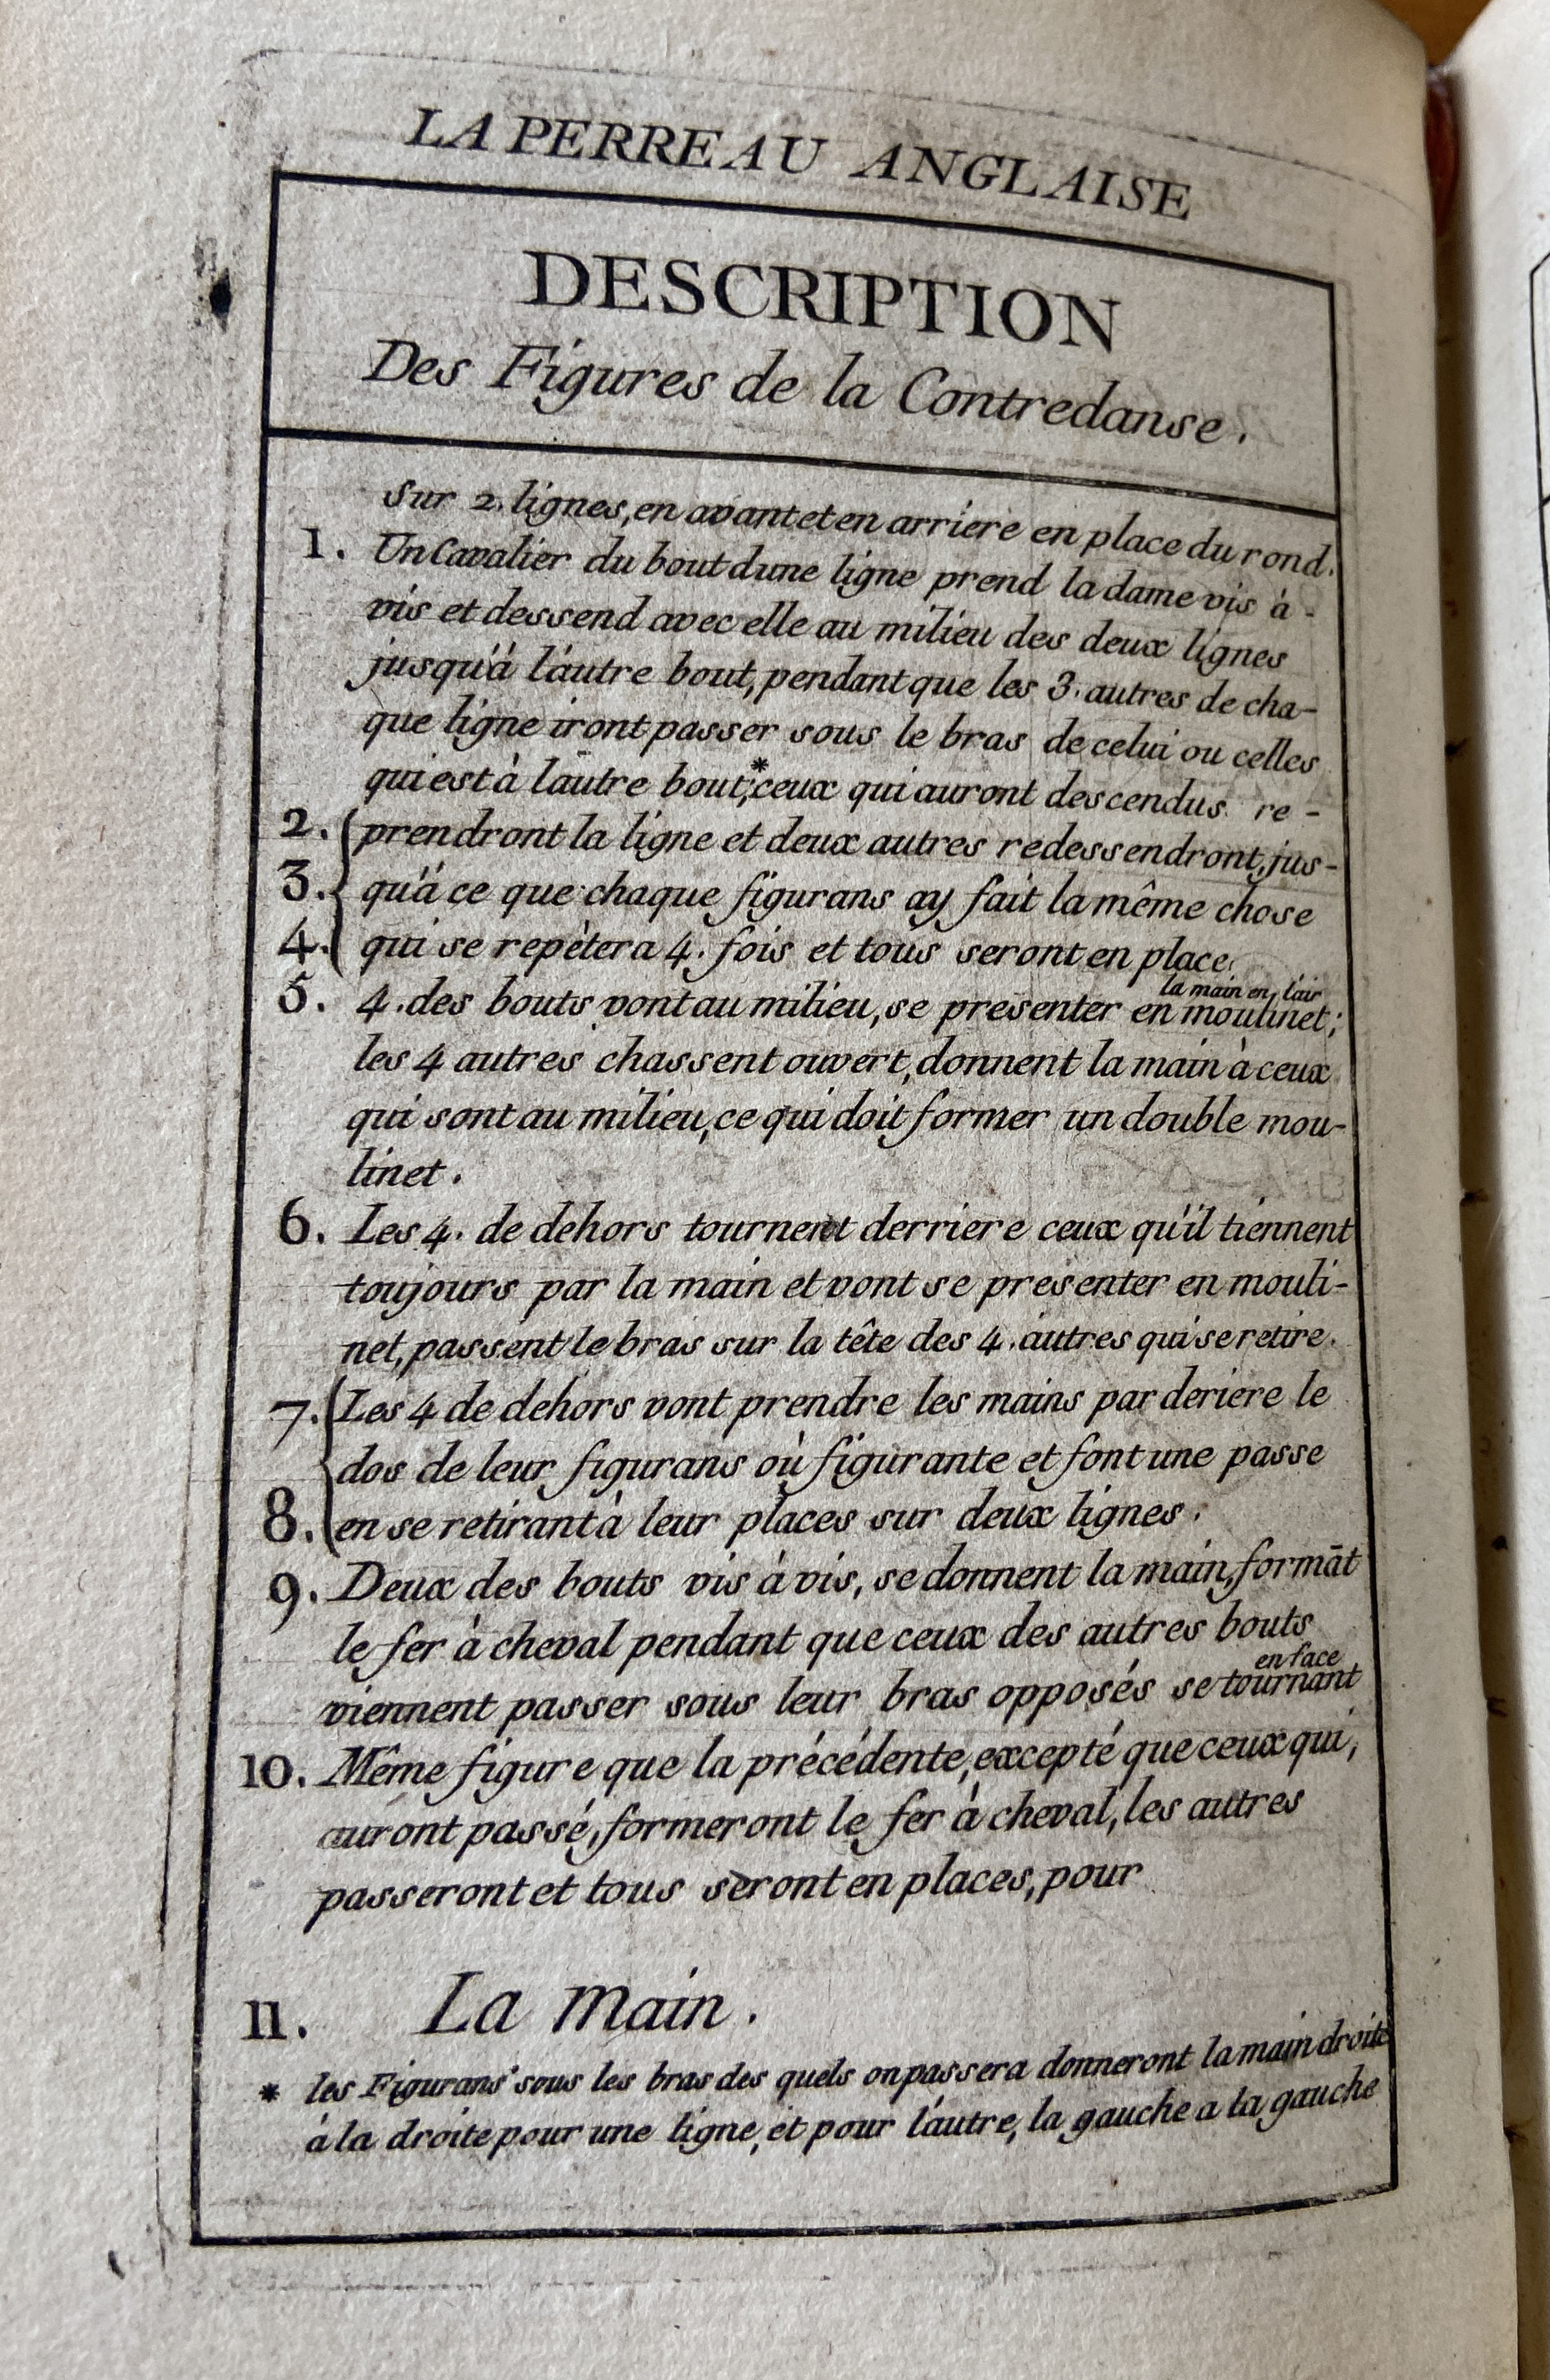 LA PERREAU ANGLAISE
DESCRIPTION
Des Figures de la Contredanse.
Sur 2. lignes, en avant et en arriere en place du rond.
1. Un Cavalier du bout dune ligne prend la dame vis à-
vis et dessend avec elle au milieu des deux lignes
jusqu'à l'autre bout, pendant que les 3. autres de cha-
que ligne iront passer sous le bras de celui ou celles
qui est à l'autre bout;* ceux qui auront descendus re-
2. prendront la ligne et deux autres redessendront, jus-
3. qu'à ce que chaque figurans ay fait la même chose
4. qui se repètera 4. fois et tous seront en place.
la main en l'air
5. 4. des bouts vont au milieu, se presenter en moulinet;
les 4 autres chassent ouvert, donnent la main à ceux
qui sont au milieu, ce qui doit former un double mou-
linet.
6. Les 4. de dehors tournent derriere ceux qu'il tiennent
toujours par la main et vont se presenter en mouli-
net, passent le bras sur la tête des 4. autres qui se retire.
7. Les 4 de dehors vont prendre les mains par deriere le
dos de leur figurans où figurante et font une passe
8. en se retirant à leur places sur deux lignes.
9. Deux des bouts vis à vis, se donnent la main, formāt
le fer à cheval pendant que ceux des autres bouts
en face
viennent passer sous leur bras opposés se tournant
10. Même figure que la précédente, excepté que ceux qui,
auront passé, formeront le fer à cheval, les autres
passeront et tous seront en places, pour
11. La main.
* les Figurans sous les bras des quels on passera donneront la main droite
à la droite pour une ligne, et pour l'autre, la gauche a la gauche